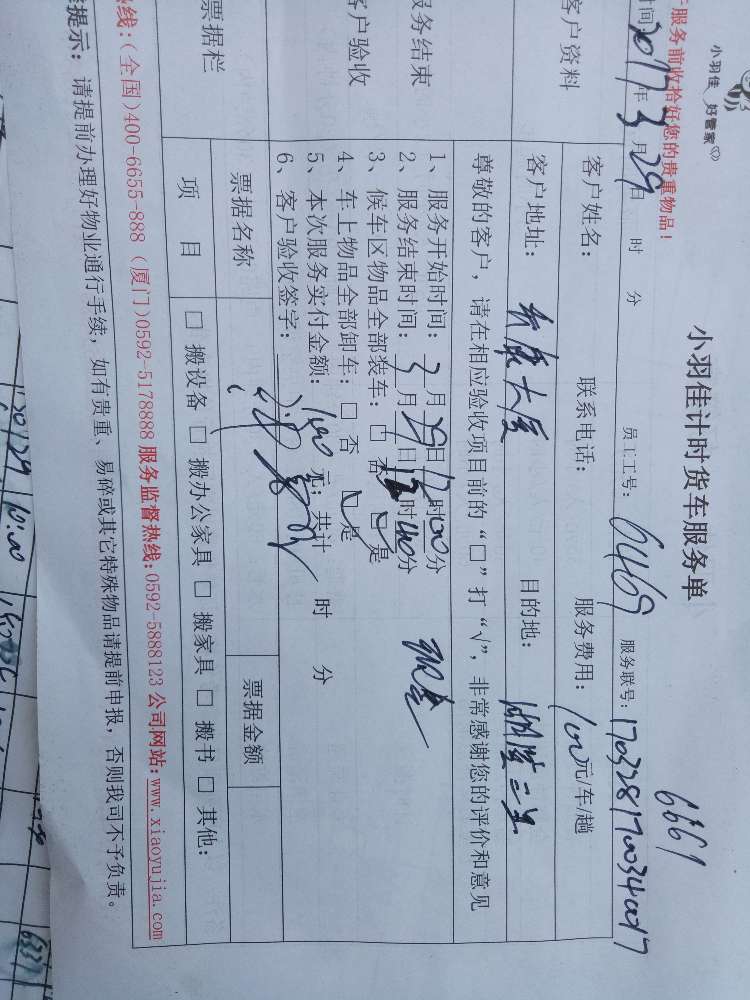 小羽佳 好管家
服务前收拾好您的贵重物品！
小羽佳计时货车服务单
6661
时间2017年3月29日 时 分 员工工号：6469 服务联号：1703281700340017
客户资料
客户姓名： 联系电话： 服务费用：100元/车/趟
客户地址： 大厦 目的地：
尊敬的客户，请在相应验收项目前的“□”打“√”，非常感谢您的评价和意见
服务结束
客户验收
1、服务开始时间：3月29日12时00分
2、服务结束时间：3月29日12时40分 现金
3、候车区物品全部装车：□ 否 □是
4、车上物品全部卸车：□ 否 □是
5、本次服务实付金额：100元；共计 时 分
6、客户验收签字：
票据栏
票据名称 票据金额
项目 □ 搬设备 □ 搬办公家具 □ 搬家具 □ 搬书 □ 其他：
热线：（全国）400-6655-888（厦门）0592-5178888 服务监督热线：0592-5888123 公司网站：www.xiaoyujia.com
提示：请提前办理好物业通行手续，如有贵重、易碎或其它特殊物品请提前申报，否则我司不予负责。